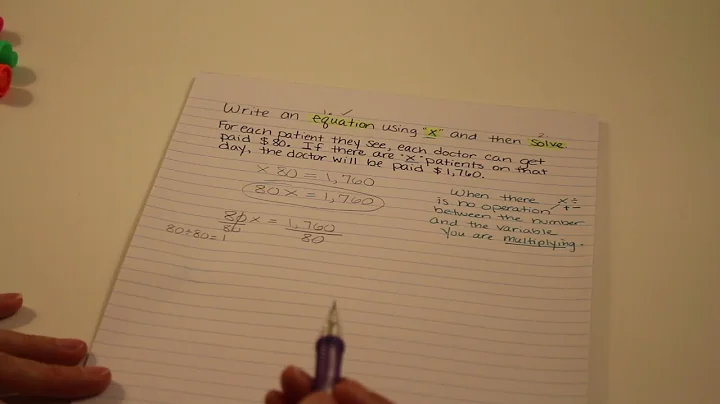 1. ✓
Write an equation using "x" and then solve.
2.
For each patient they see, each doctor can get
paid $80. If there are "x" patients on that
day, the doctor will be paid $1,760.
x 80 = 1,760
80x = 1,760
When there
is no operation x ÷ + -
between the number
and the variable
you are multiplying.
80x = 1,760
80 80
80÷80=1